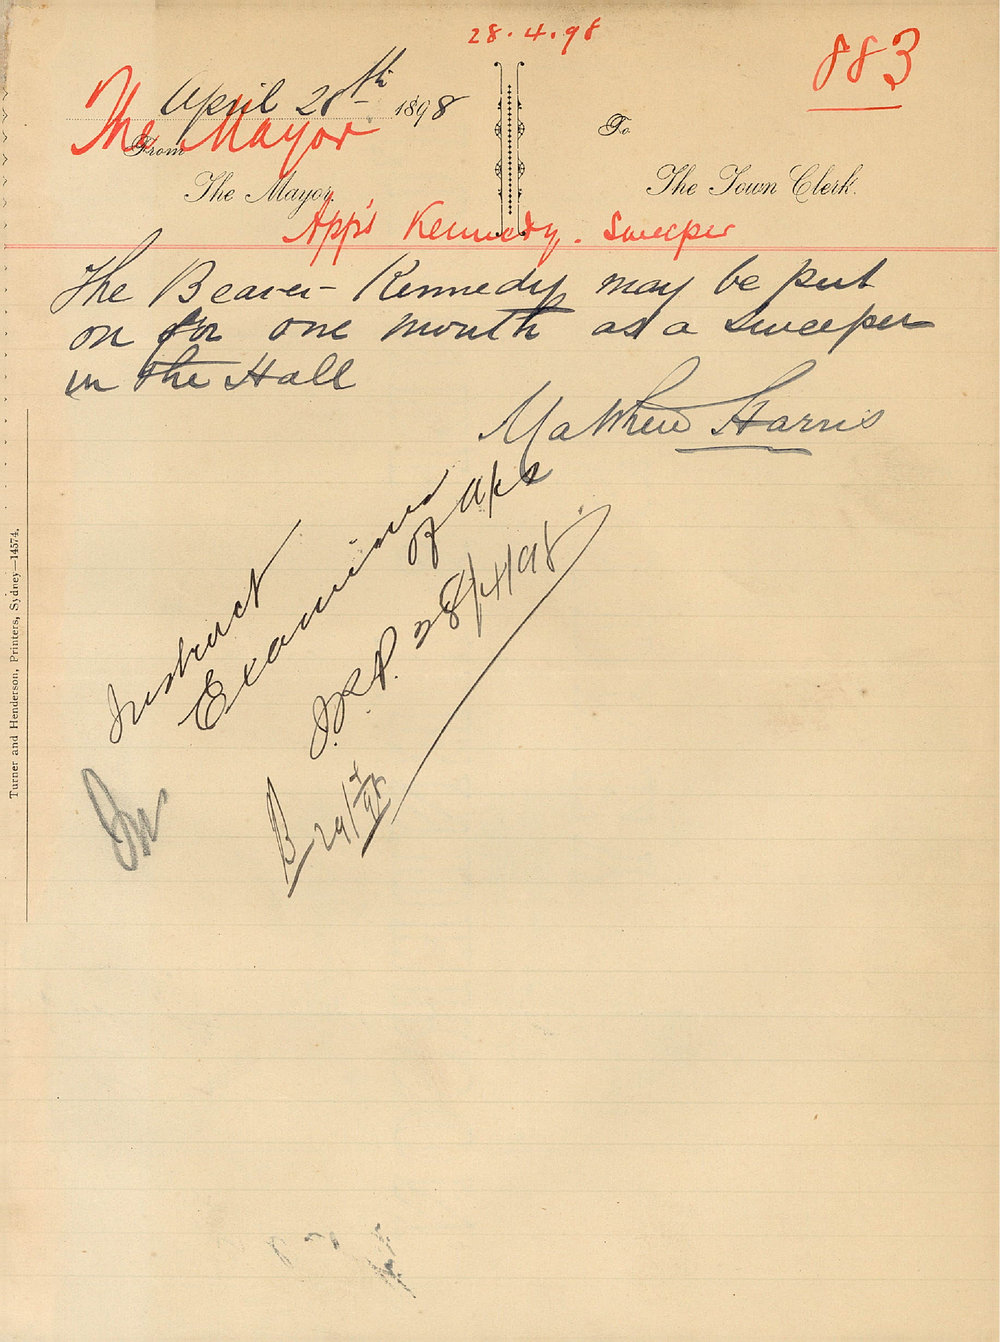 28.4.98
883
April 28th 1898
The Mayor
From
To
The Mayor.
The Town Clerk.
App's Kennedy. Sweeper
The Bearer Kennedy may be put
on for one month as a sweeper
in the Hall
Matthew Harris
Instruct
Examiner
of A/cs
28/4/98
B 29/4/98
Turner and Henderson, Printers, Sydney—14574.